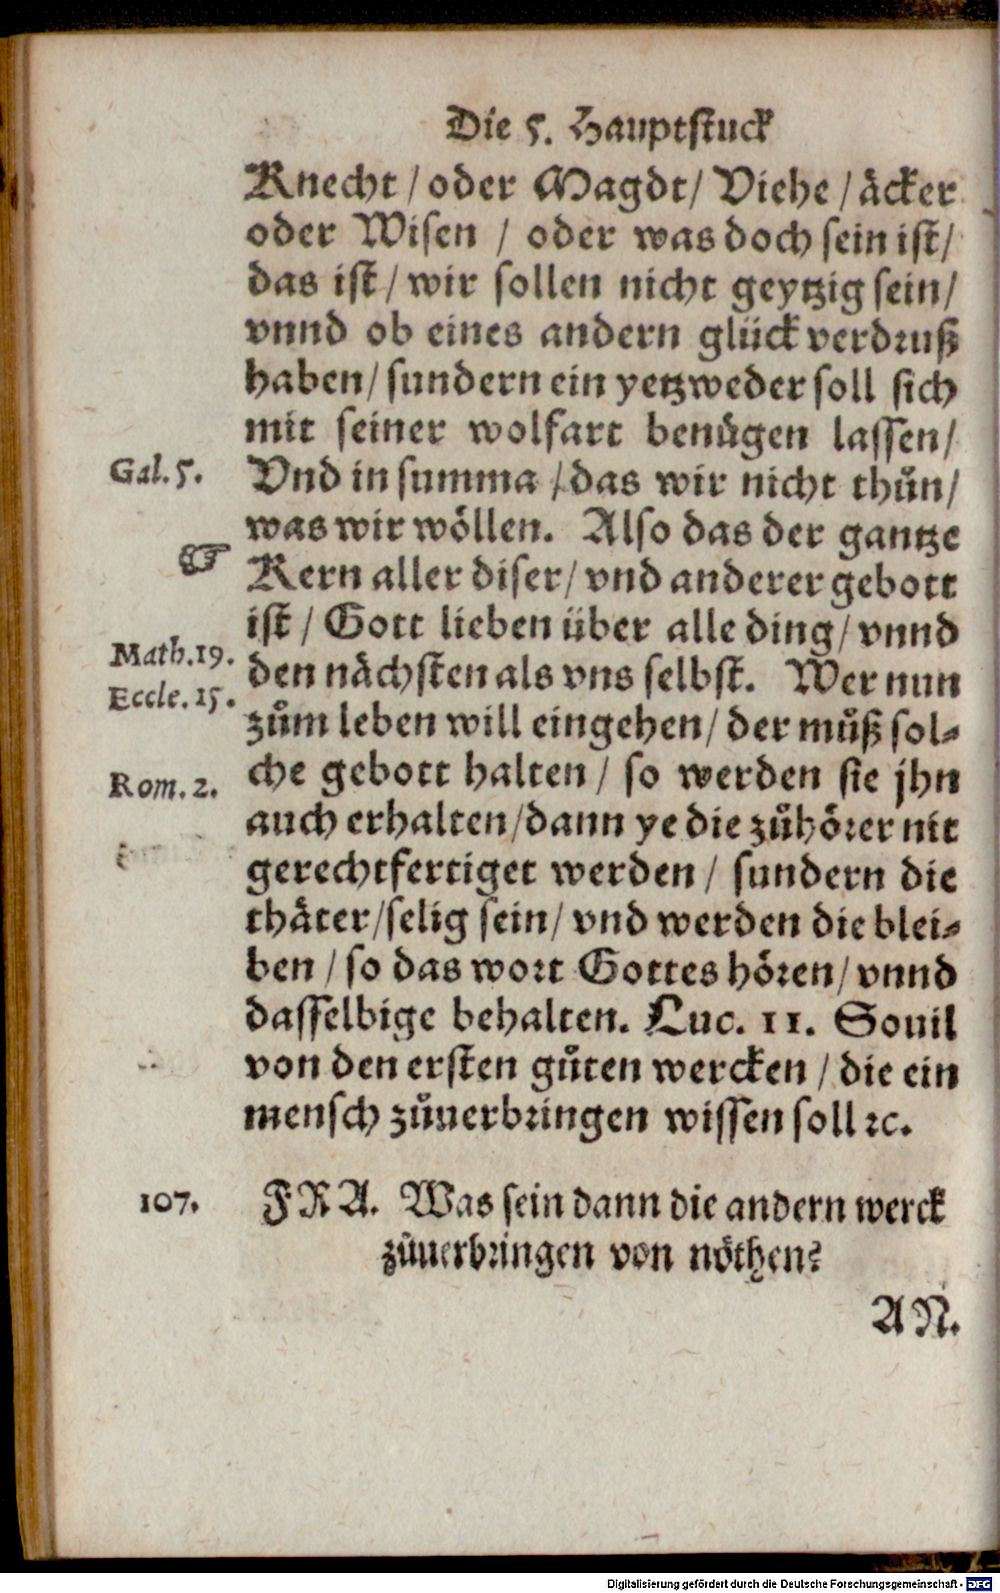 Die 5. Hauptstuck
Knecht / oder Magdt / Viehe / äcker
oder Wisen / oder was doch sein ist /
das ist / wir sollen nicht geytzig sein /
vnnd ob eines andern glück verdruß
haben / sundern ein yetzweder soll sich
mit seiner wolfart benügen lassen /
Gal. 5. Vnd in summa / das wir nicht thůn /
was wir wöllen. Also das der gantze
☞ Kern aller diser / vnd anderer gebott
ist / Gott lieben über alle ding / vnnd
Math. 19. den nächsten als vns selbst. Wer nun
Eccle. 15. zům leben will eingehen / der můß sol⸗
Rom. 2. che gebott halten / so werden sie jhn
auch erhalten / dann ye die zůhörer nit
gerechtfertiget werden / sundern die
thäter / selig sein / vnd werden die blei⸗
ben / so das wort Gottes hören / vnnd
dasselbige behalten. Luc. 11. Souil
von den ersten gůten wercken / die ein
mensch zůuerbringen wissen soll ꝛc.
107. FRA. Was sein dann die andern werck
zůuerbringen von nöthen?
AN.
Digitalisierung gefördert durch die Deutsche Forschungsgemeinschaft - DFG